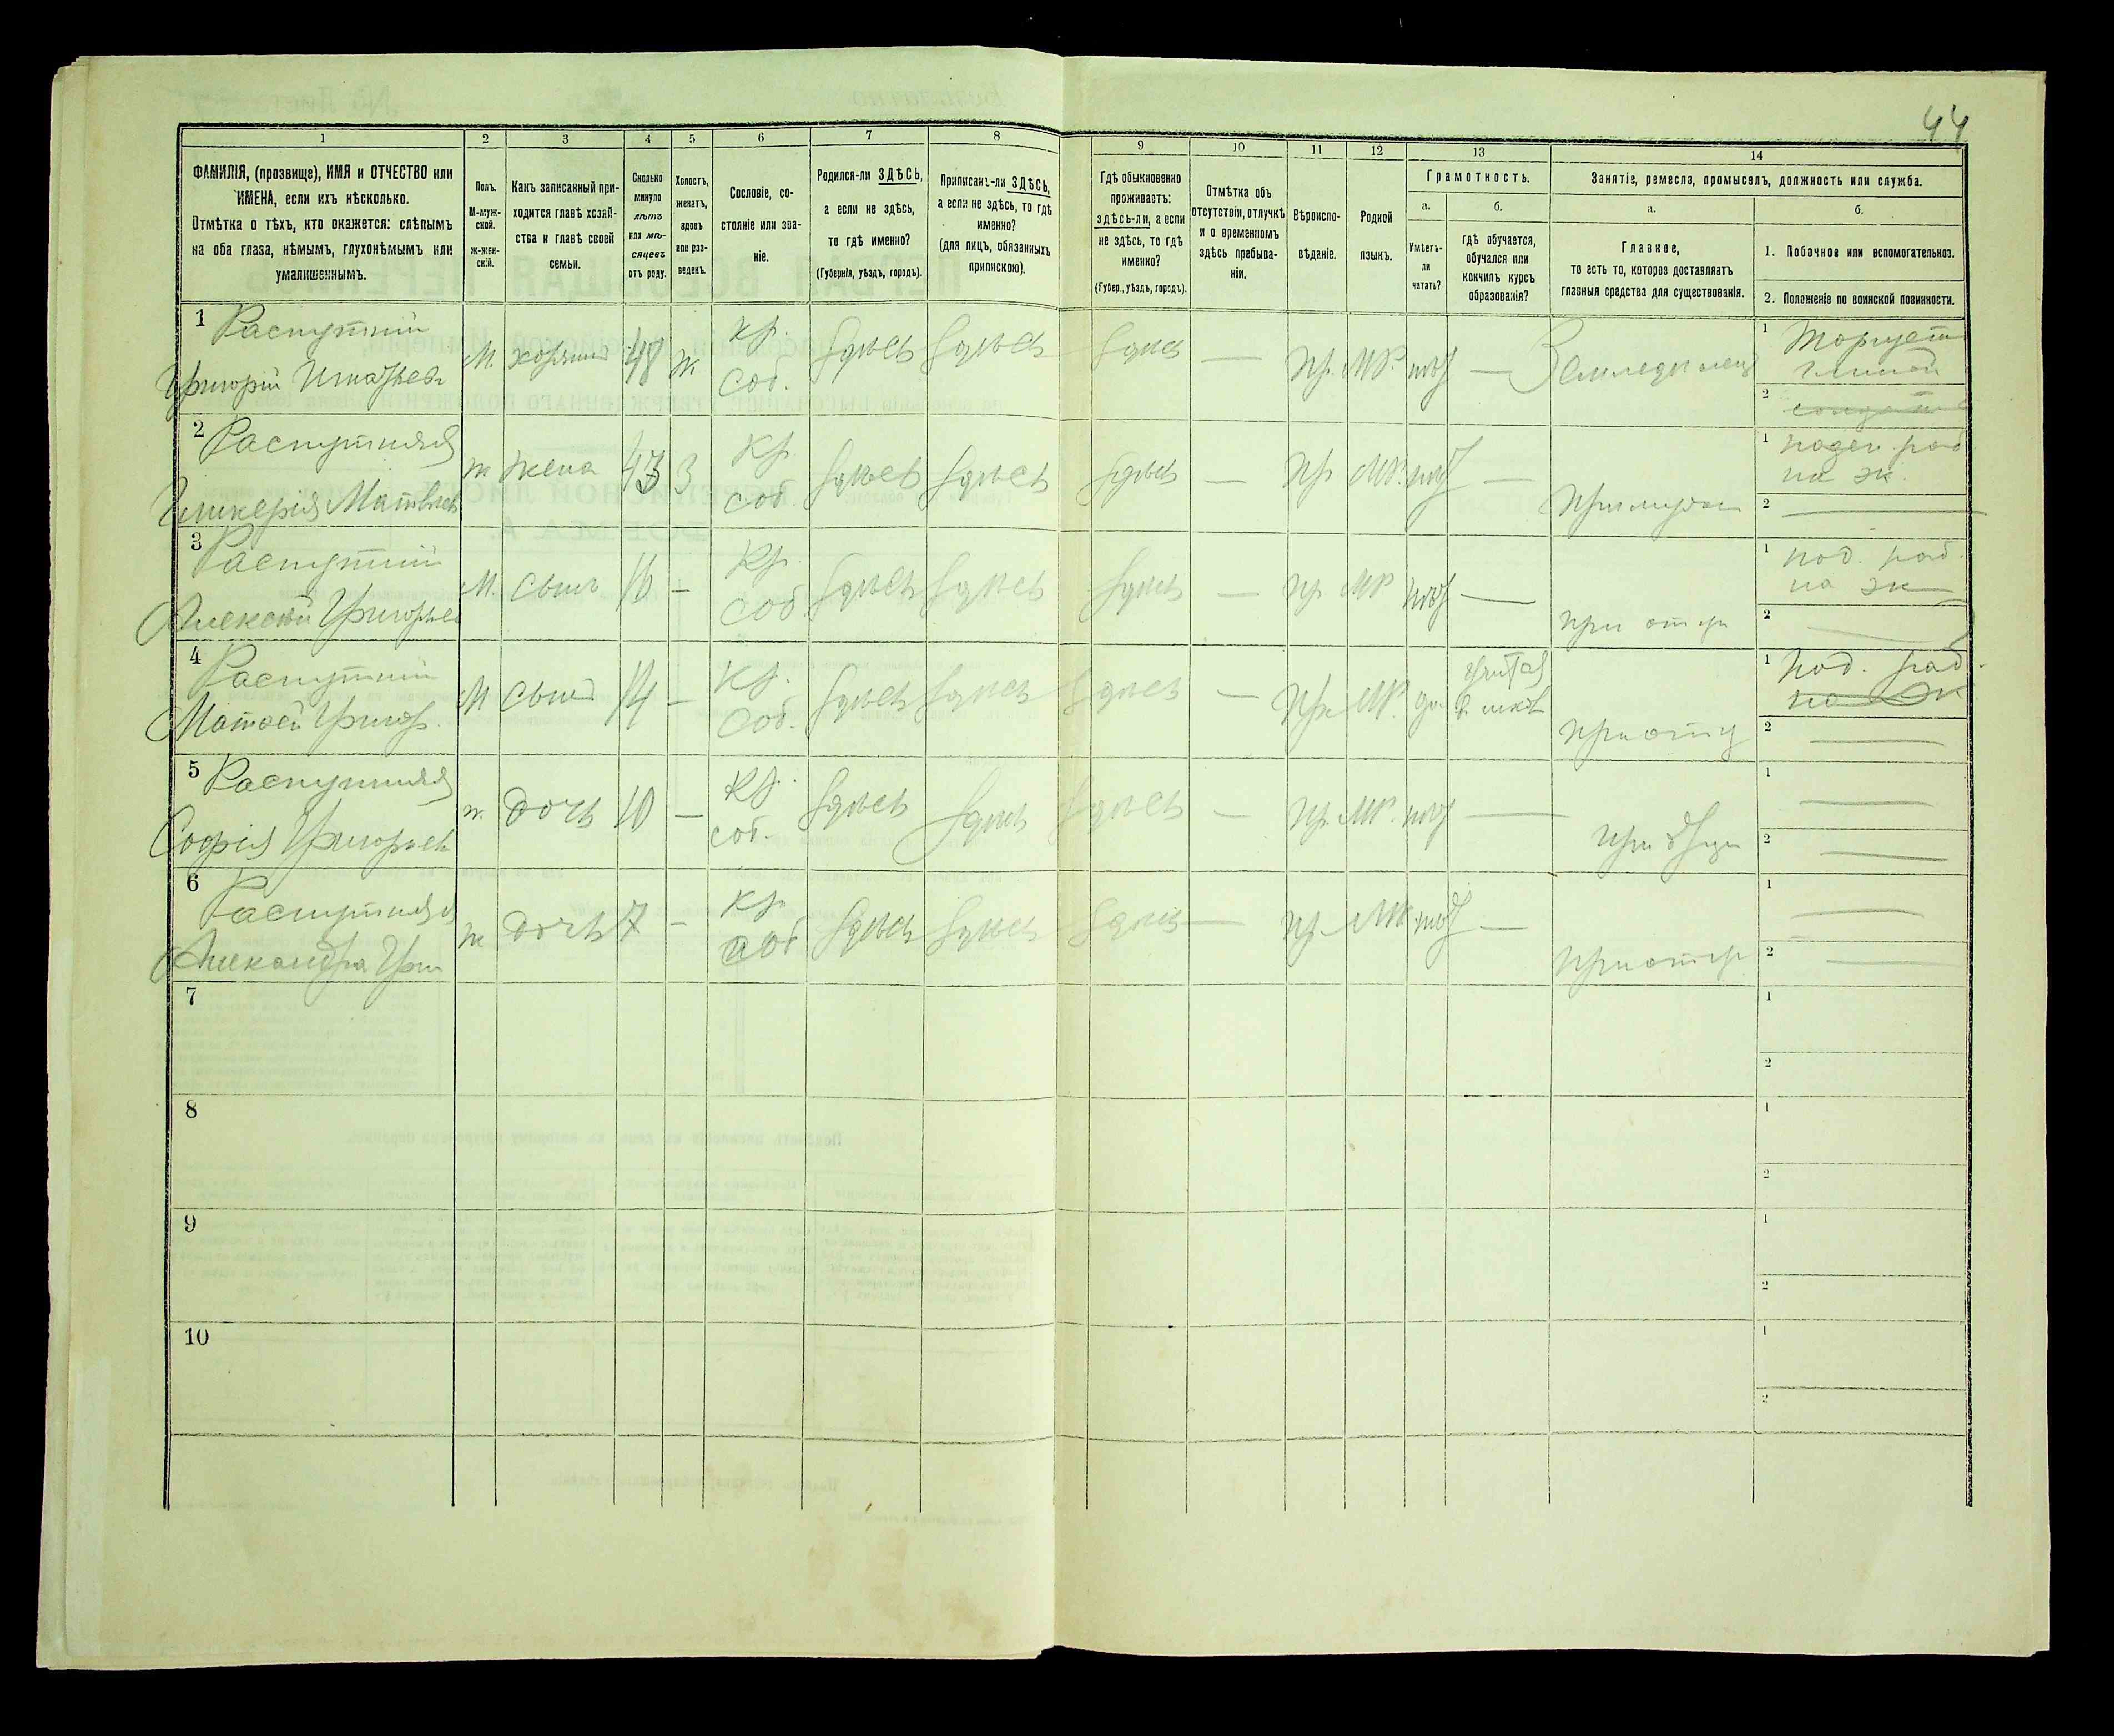 44
1
2
3
4
5
6
7
8
9
10
11
12
13
14
ФАМИЛІЯ, (прозвище), ИМЯ и ОТЧЕСТВО или
ИМЕНА, если ихъ нѣсколько.
Отмѣтка о тѣхъ, кто окажется: слѣпымъ
на оба глаза, нѣмымъ, глухонѣмымъ или
умалишеннымъ.
Полъ.
М-муж-
ской.
Ж-жен-
скій.
Какъ записанный при-
ходится главѣ хозяй-
ства и главѣ своей
семьи.
Сколько
минуло
лѣтъ
или мѣ-
сяцевъ
отъ роду.
Холостъ,
женатъ,
вдовъ
или раз-
веденъ.
Сословіе, со-
стояніе или зва-
ніе.
Родился-ли ЗДѢСЬ,
а если не здѣсь,
то гдѣ именно?
(Губернія, уѣздъ, городъ).
Приписанъ-ли ЗДѢСЬ,
а если не здѣсь, то гдѣ
именно?
(для лицъ, обязанныхъ
припискою).
Гдѣ обыкновенно
проживаетъ:
здѣсь-ли, а если
не здѣсь, то гдѣ
именно?
(Губер., уѣздъ, городъ).
Отмѣтка объ
отсутствіи, отлучкѣ
и о временномъ
здѣсь пребыва-
ніи.
Вѣроиспо-
вѣданіе.
Родной
языкъ.
Грамотность.
а.
Умѣетъ-
ли
читать?
б.
гдѣ обучается,
обучался или
кончилъ курсъ
образованія?
Занятіе, ремесло, промыселъ, должность или служба.
а.
Главное,
то есть то, которое доставляетъ
главныя средства для существованія.
б.
1. Побочное или вспомогательное.
2. Положеніе по воинской повинности.
1 Распутній
Григорій Игнатьев
М. хозяинъ 48 ж кр. соб. здѣсь здѣсь здѣсь — пр. МР. нѣт — Земледѣлец
1 Торгует
глиной
2
2 Распутняя
Гликерія Матвѣев
ж жена 43 З кр. соб. здѣсь здѣсь здѣсь — пр МР. нѣт — При мужѣ
1 поден раб
на эк.
2 —
3 Распутній
Алексѣй Григорьев
М. сынъ 16 - кр. соб здѣсь здѣсь здѣсь — пр МР нѣт — при отцѣ
1 под. раб.
на эк
2 —
4 Распутній
Матвѣй Григор.
М сынъ 14 - кр. соб. здѣсь здѣсь здѣсь — пр. МР. да При отцѣ
1 под. раб.
на эк
2 —
5 Распутняя
Софія Григорьев
ж. дочь 10 — кр. соб. здѣсь здѣсь здѣсь — пр. МР. нѣт —
1 —
2 —
6 Распутняя
Александра Гри
ж дочь 7 - кр. соб здѣсь здѣсь здѣсь — пр. МР. нѣт — При отцѣ
1 —
2 —
7
1
2
8
1
2
9
1
2
10
1
2